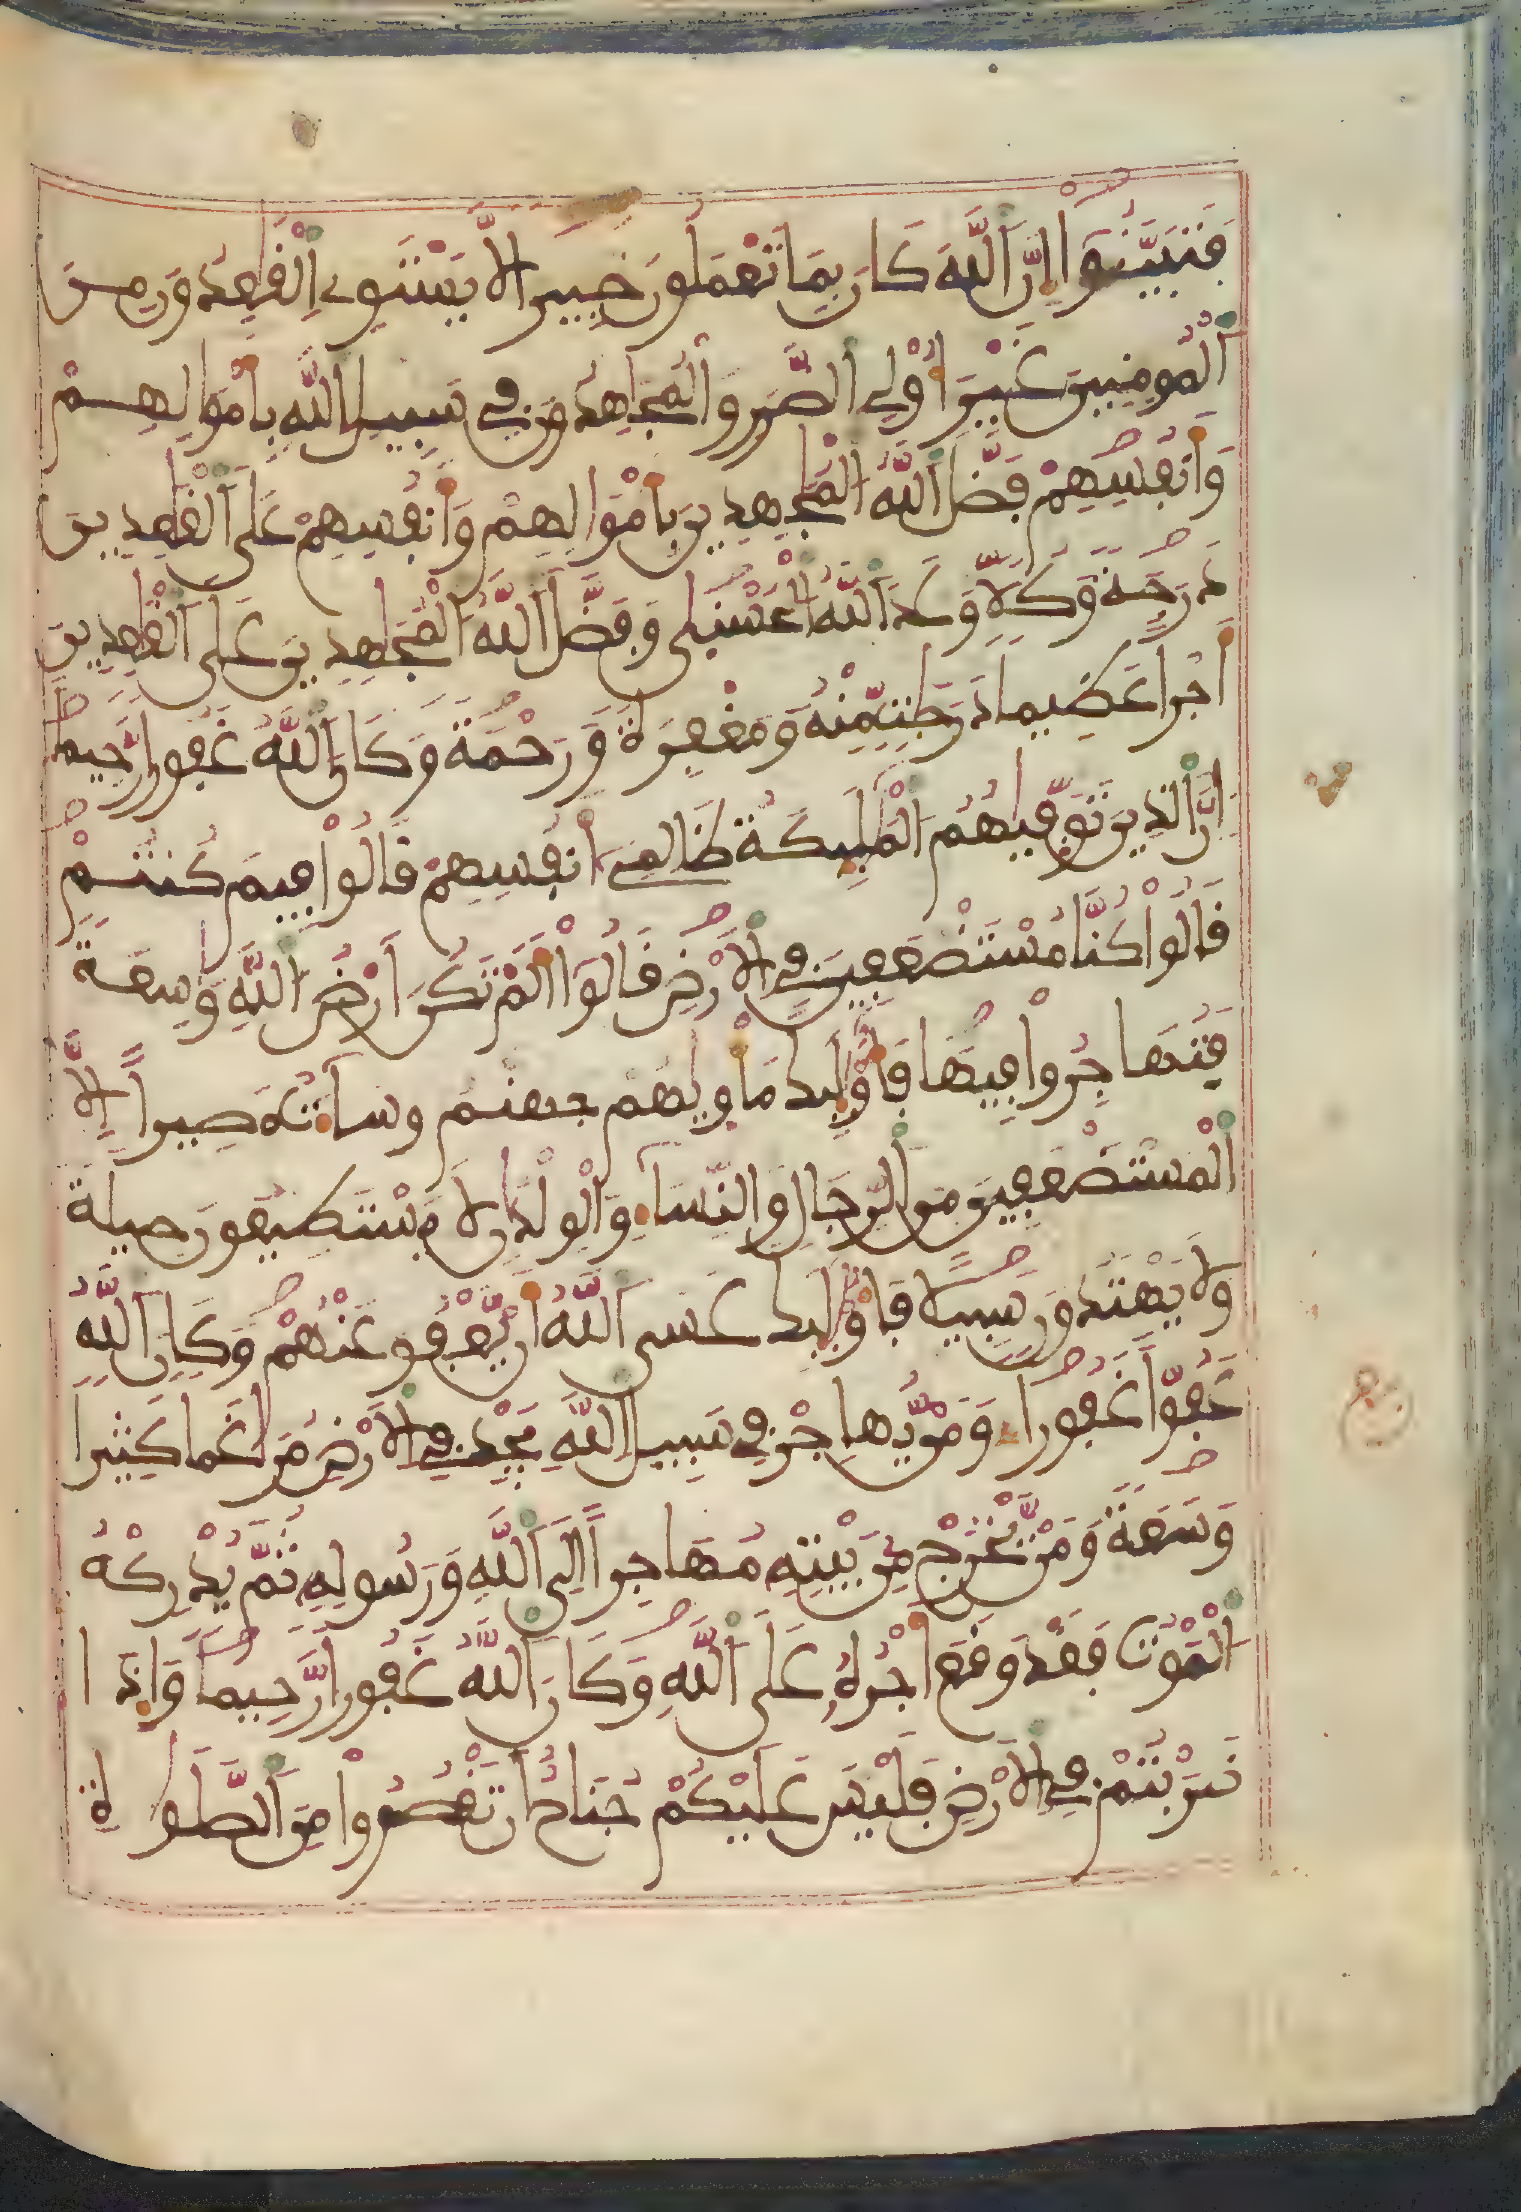 فَتَبَيَّنُوٓا۟ إِنَّ ٱللَّهَ كَانَ بِمَا تَعْمَلُونَ خَبِيرًا لَّا يَسْتَوِے اِ۬لْقَٰعِدُونَ مِنَ
ٱلْمُومِنِينَ غَيْرَ أُو۟لِے ٱلضَّرَرِ وَٱلْمُجَٰهِدُونَ فِے سَبِيلِ ٱللَّهِ بِأَمْوَٰلِهِمْ
وَأَنفُسِهِمْ فَضَّلَ ٱللَّهُ ٱلْمُجَٰهِدِينَ بِأَمْوَٰلِهِمْ وَأَنفُسِهِمْ عَلَى ٱلْقَٰعِدِينَ
دَرَجَةً وَكُلًّا وَعَدَ ٱللَّهُ ٱلْحُسْنَىٰ وَفَضَّلَ ٱللَّهُ ٱلْمُجَٰهِدِينَ عَلَى ٱلْقَٰعِدِينَ
أَجْرًا عَظِيمًا دَرَجَٰتٍ مِّنْهُ وَمَغْفِرَةً وَرَحْمَةً وَكَانَ ٱللَّهُ غَفُورًا رَّحِيمًا
إِنَّ ٱلذِينَ تَوَفَّىٰهُمُ ٱلْمَلَٰٓئِكَةُ ظَالِمِے أَنفُسِهِمْ قَالُوا۟ فِيمَ كُنتُمْ
قَالُوا۟ كُنَّا مُسْتَضْعَفِينَ فِے ٱلْأَرْضِ قَالُوٓا۟ أَلَمْ تَكُنَ اَرْضُ ٱللَّهِ وَٰسِعَةً
فَتُهَاجِرُوا۟ فِيهَا فَأُو۟لَٰٓئِكَ مَأْوَىٰهُمْ جَهَنَّمُ وَسَآءَتْ مَصِيرًا إِلَّا
ٱلْمُسْتَضْعَفِينَ مِنَ ٱلرِّجَالِ وَٱلنِّسَآءِ وَٱلْوِلْدَٰنِ لَا يَسْتَطِيعُونَ حِيلَةً
وَلَا يَهْتَدُونَ سَبِيلًا فَأُو۟لَٰٓئِكَ عَسَى ٱللَّهُ أَنْ يَّعْفُوَ عَنْهُمْ وَكَانَ ٱللَّهُ
عَفُوًّا غَفُورًا وَمَنْ يُّهَاجِرْ فِے سَبِيلِ ٱللَّهِ يَجِدْ فِے ٱلْأَرْضِ مُرَٰغَمًا كَثِيرًا
وَسَعَةً وَمَنْ يَّخْرُجْ مِنۢ بَيْتِهِ مُهَاجِرًا إِلَى ٱللَّهِ وَرَسُولِهِ ثُمَّ يُدْرِكْهُ
ٱلْمَوْتُ فَقَدْ وَقَعَ أَجْرُهُ عَلَى ٱللَّهِ وَكَانَ ٱللَّهُ غَفُورًا رَّحِيمًا وَإِذَا
ضَرَبْتُمْ فِے ٱلْأَرْضِ فَلَيْسَ عَلَيْكُمْ جُنَاحٌ أَن تَقْصُرُوا۟ مِنَ ٱلصَّلَوٰةِ